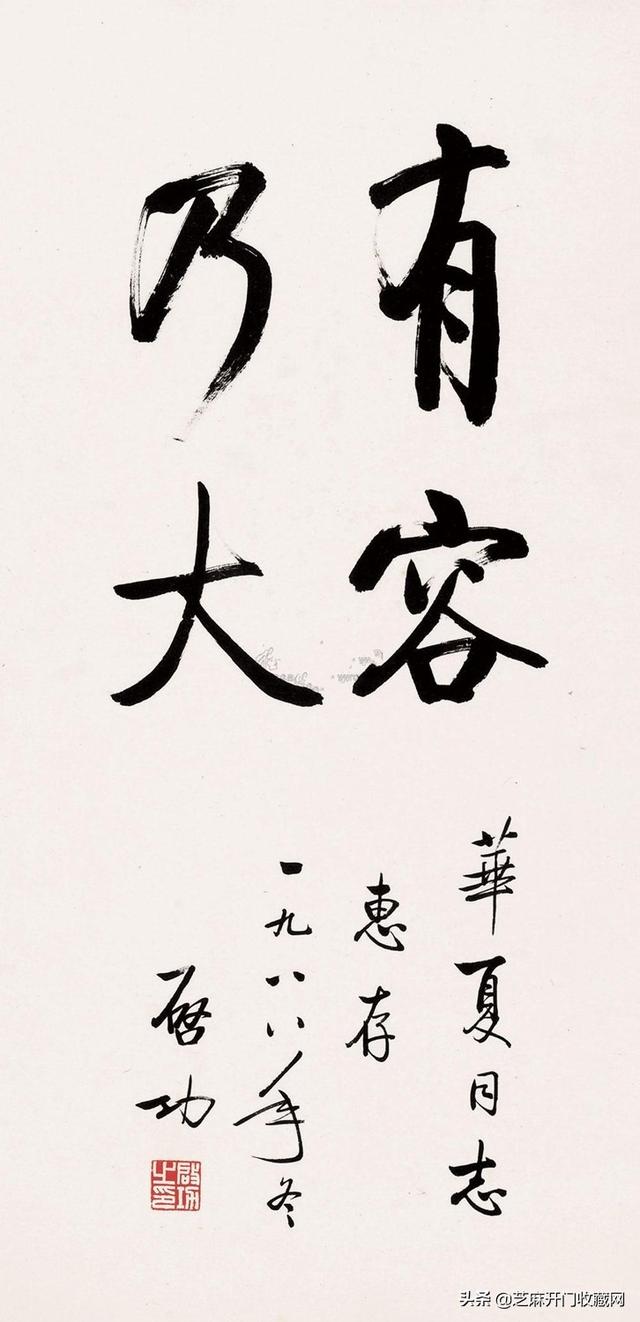 有容
乃大
華夏同志
惠存
一九八八年冬
啓功
啟功之印
头条 @芝麻开门收藏网